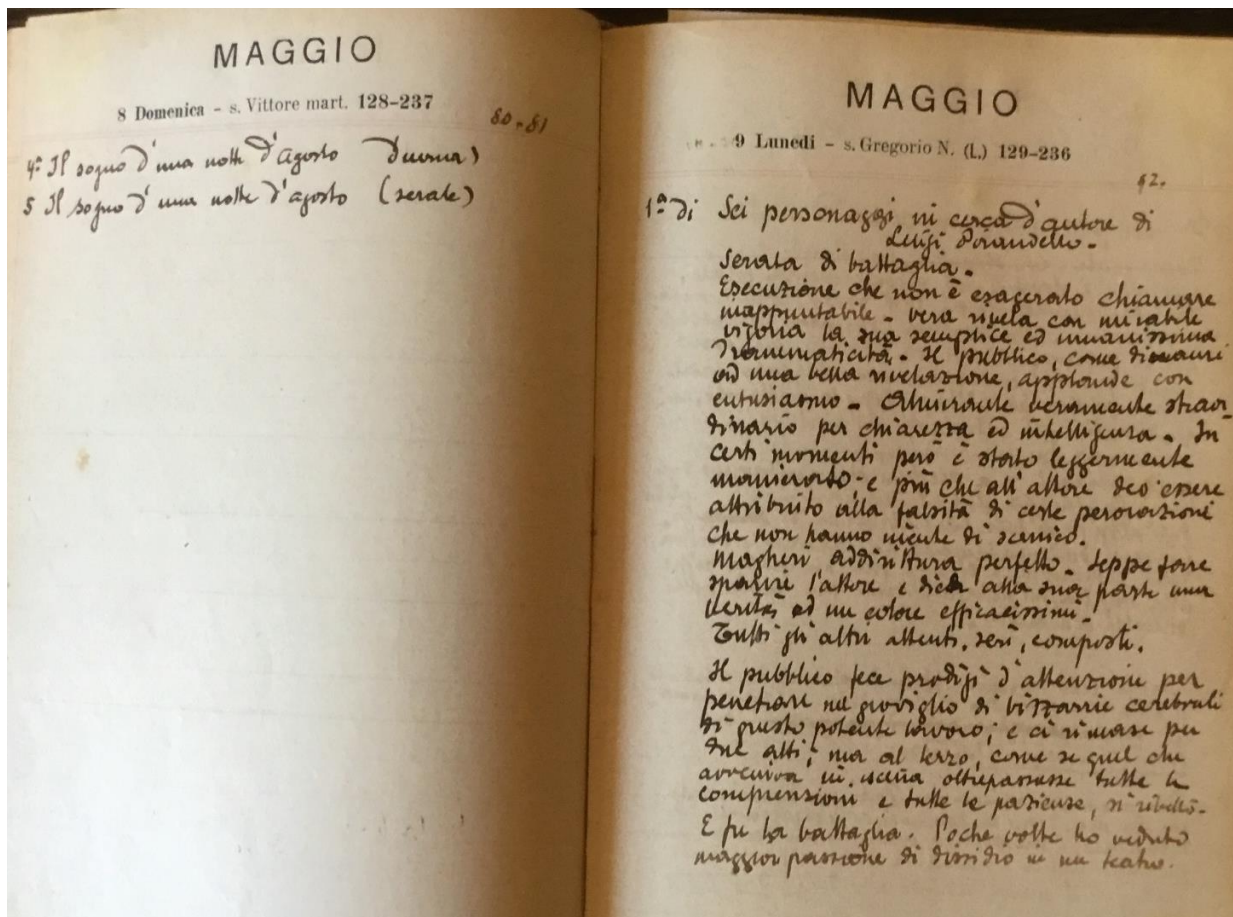 MAGGIO
8 Domenica - s. Vittore mart. 128-237
80-81
4ª Il sogno d'una notte d'Agosto Diurna)
5 Il sogno d'una notte d'agosto (serale)
MAGGIO
9 Lunedì - s. Gregorio N. (L.) 129-236
82.
1ª di Sei personaggi in cerca d'autore di
Luigi Pirandello -
Serata di battaglia -
Esecuzione che non è esagerato chiamare
inappuntabile - Vera rivela con mirabile
vigoria la sua semplice ed umanissima
drammaticità - Il pubblico, come dinnanzi
ad una bella rivelazione, applaude con
entusiasmo - Almirante veramente straor
dinario per chiarezza ed intelligenza - In
certi momenti però è stato leggermente
manierato; e più che all'attore deo essere
attribuito alla falsità di certe perorazioni
che non hanno niente di scenico.
Magheri addirittura perfetto - Seppe fare
sparire l'attore e diede alla sua parte una
verità ed un colore efficacissimi -
Tutti gli altri attenti, seri, composti.
Il pubblico fece prodigi d'attenzione per
penetrare nel groviglio di bizzarrie cerebrali
di questo potente lavoro; e ci rimase per
due atti; ma al terzo, come se quel che
avveniva in iscena oltrepassasse tutte le
comprensioni e tutte le pazienze, si ribellò -
E fu la battaglia. Poche volte ho veduto
maggior passione di dissidio in un teatro.